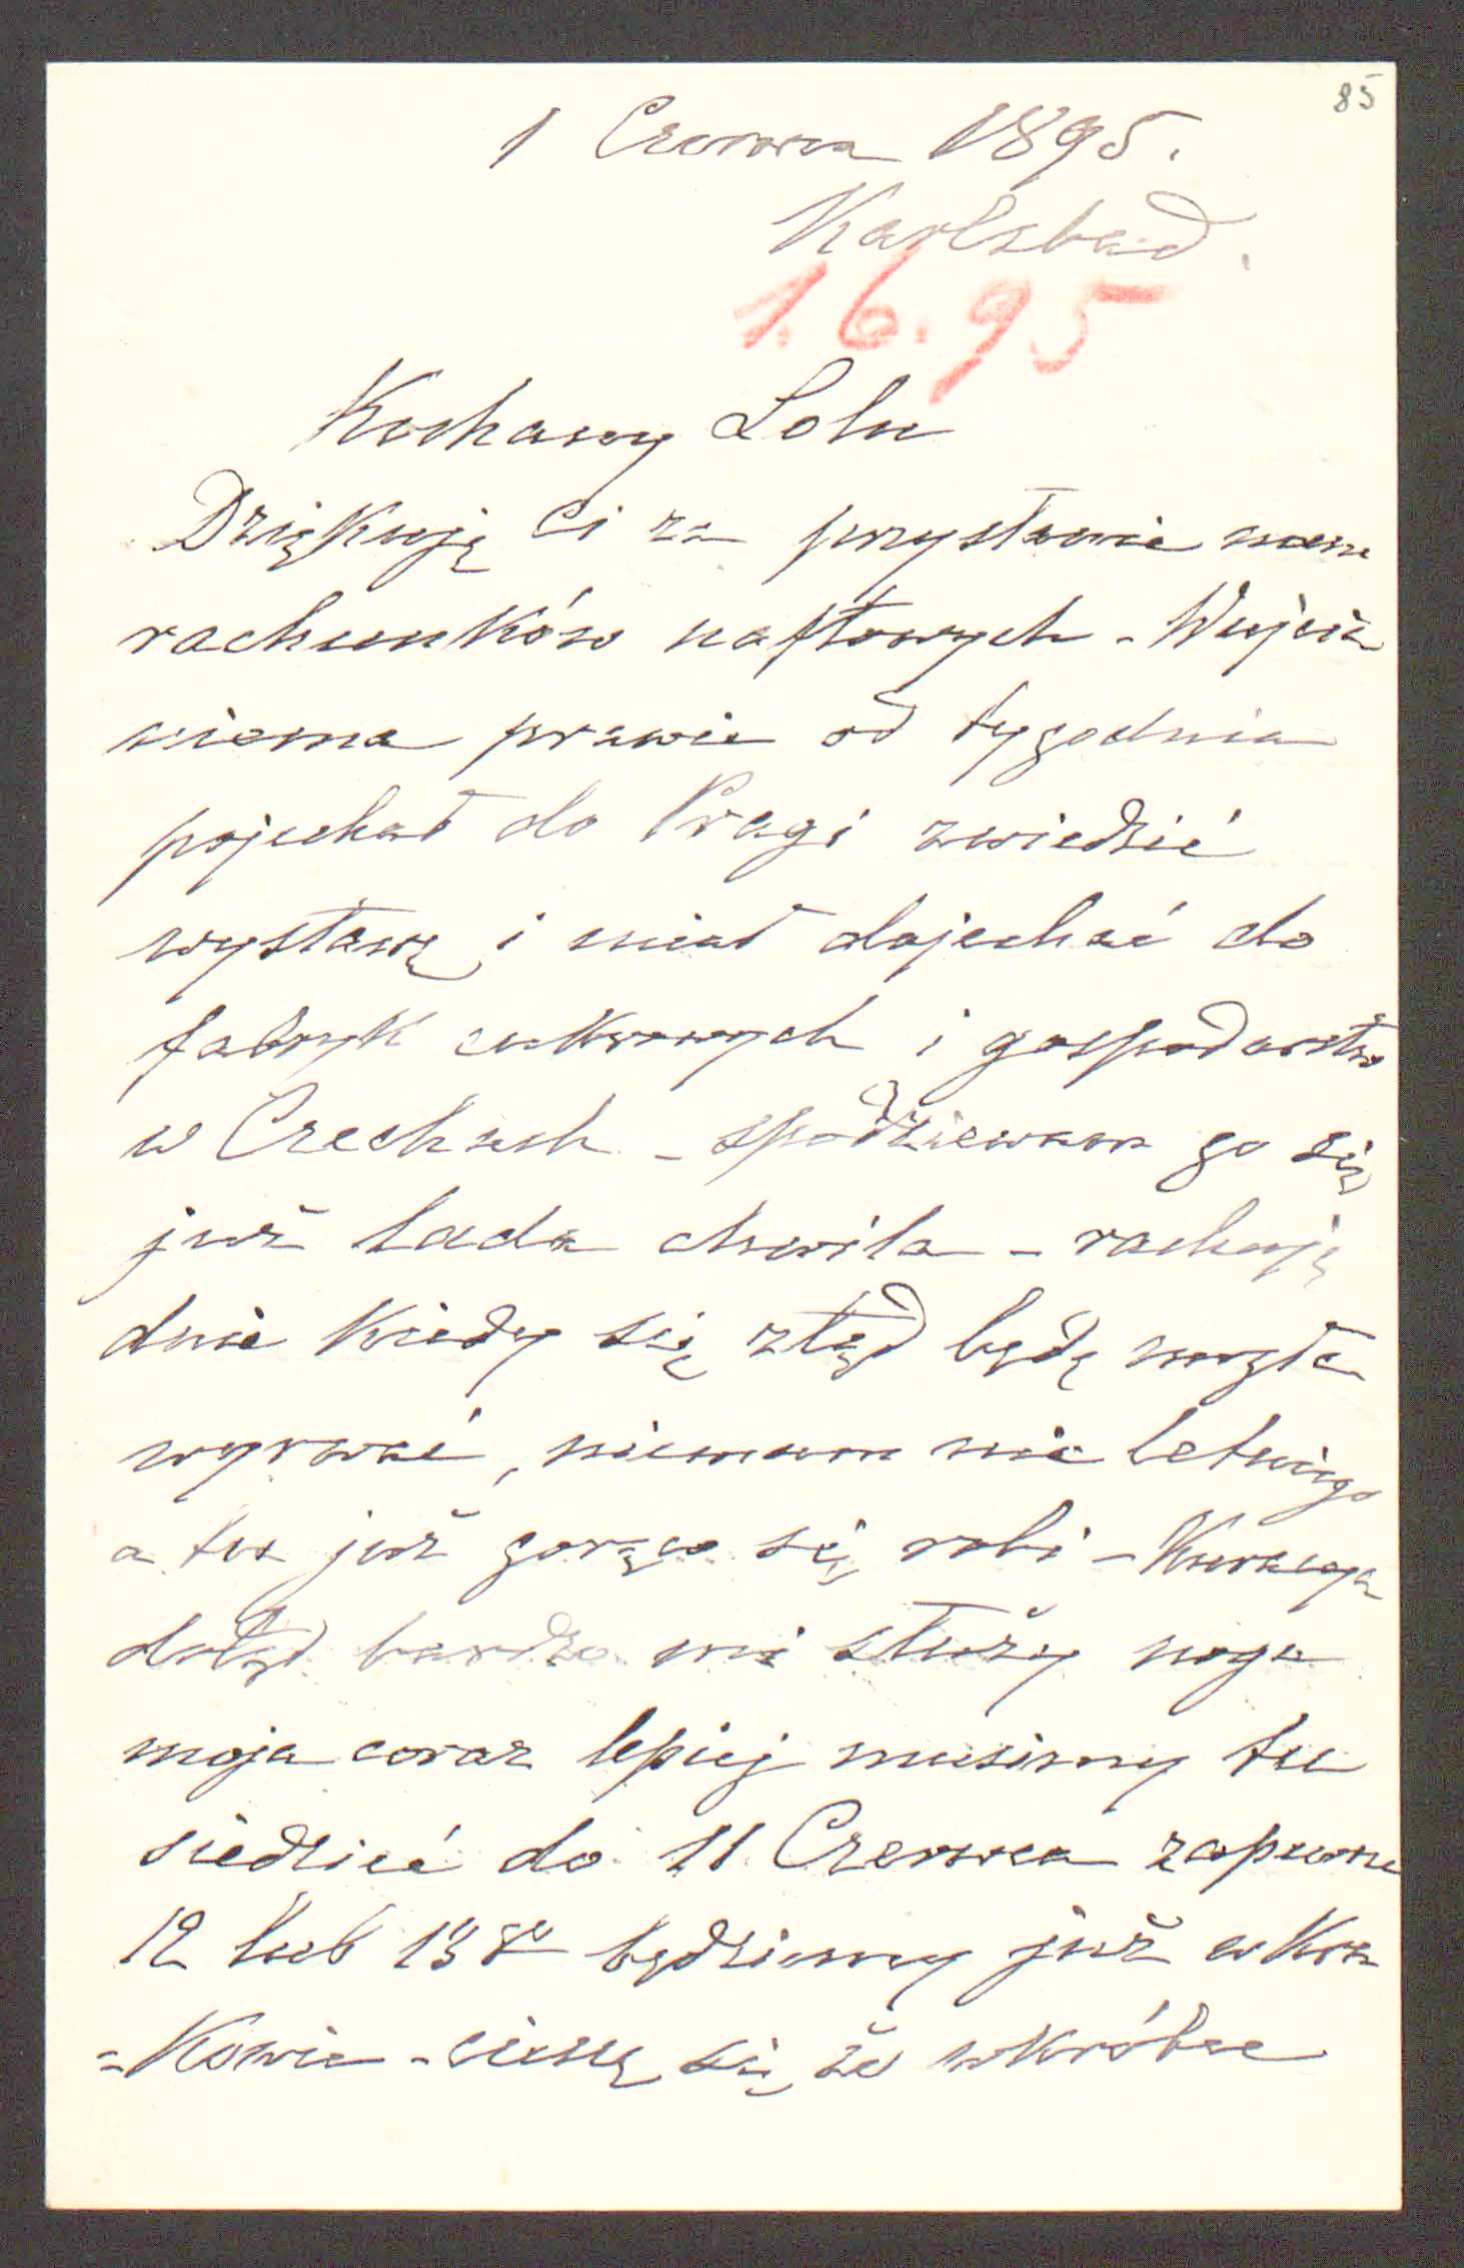 85
1 Czerwca 1895.
Karlsbad.
1.6.95
Kochany Lolu
Dziękuję Ci za przysłanie nam
rachunków naftowych - Wujcia
niema prawie od tygodnia
pojechał do Pragi zwiedzić
wystawę i miał dojechać do
fabryk cukrowych i gospodarstw
w Czechach - spodziewam go się
już lada chwila - rachuję
dnie kiedy się ztąd będę mogła
wyrwać, niemam nic letniego
a tu już gorąco się robi - Kuracya
dotąd bardzo mi służy noga
moja coraz lepiej musimy tu
siedzieć do 11 Czerwca zapewne
12 lub 13 będziemy już w Kra
=Kowie - cieszę się że wkrótce